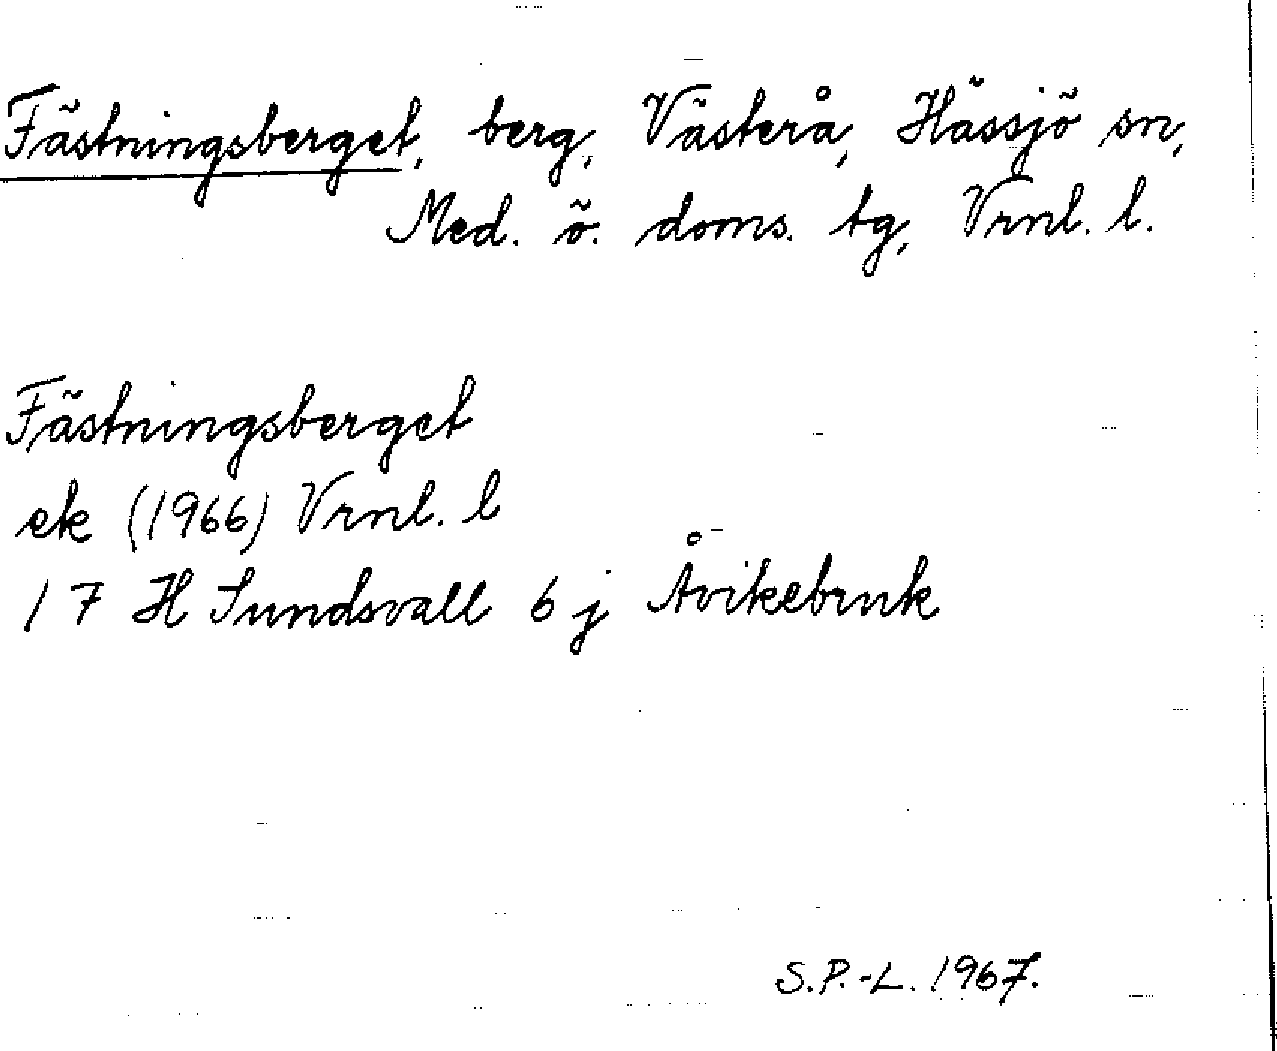 Fästningsberget, berg, Västerå, Hässjö sn,
Med. ö. doms. tg, Vrnl. l.
Fästningsberget
ek (1966) Vrnl. l
17 H Sundsvall 6 j Åvikebruk
S.P.-L. 1967.